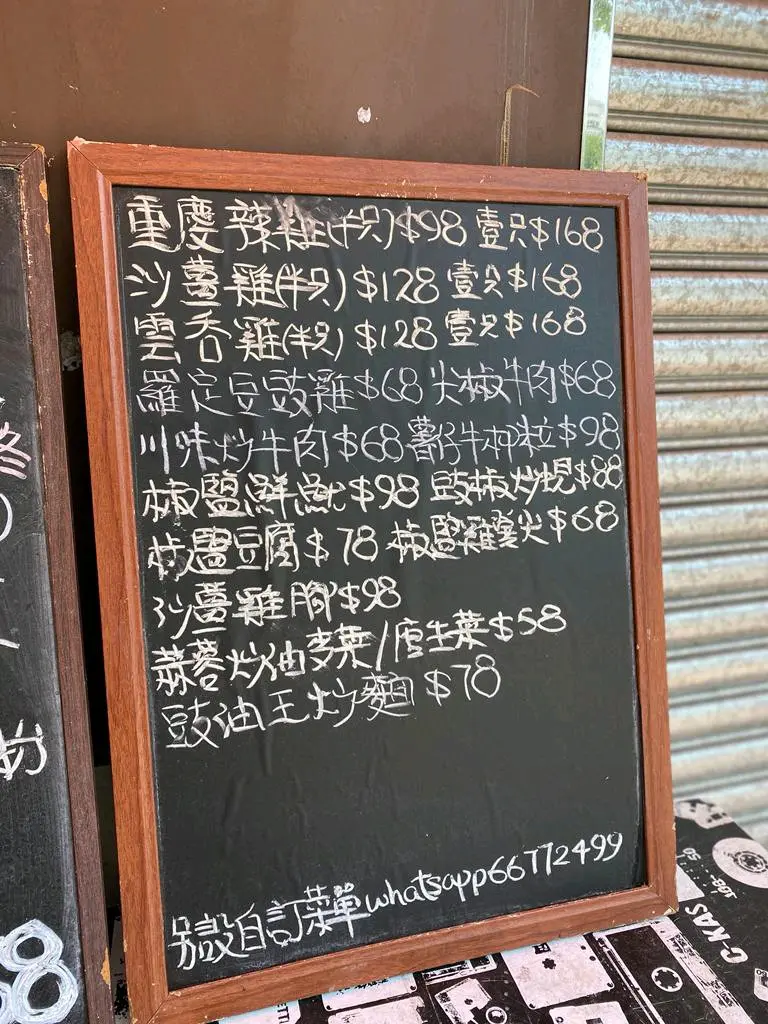 重慶辣雞(半只)$98 壹只$168
沙薑雞(半只)$128 壹只$168
雲香雞(半只)$128 壹只$168
羅定豆豉雞$68 尖椒牛肉$68
川味炒牛肉$68 薯仔牛柳粒$98
椒鹽鮮魷$98 豉椒炒蜆$88
椒鹽豆腐$78 椒鹽雞翼尖$68
沙薑雞腳$98
蒜蓉炒油麥菜/唐生菜$58
豉油王炒麵$78
另設自訂菜單whatsapp66772499
C-KAS